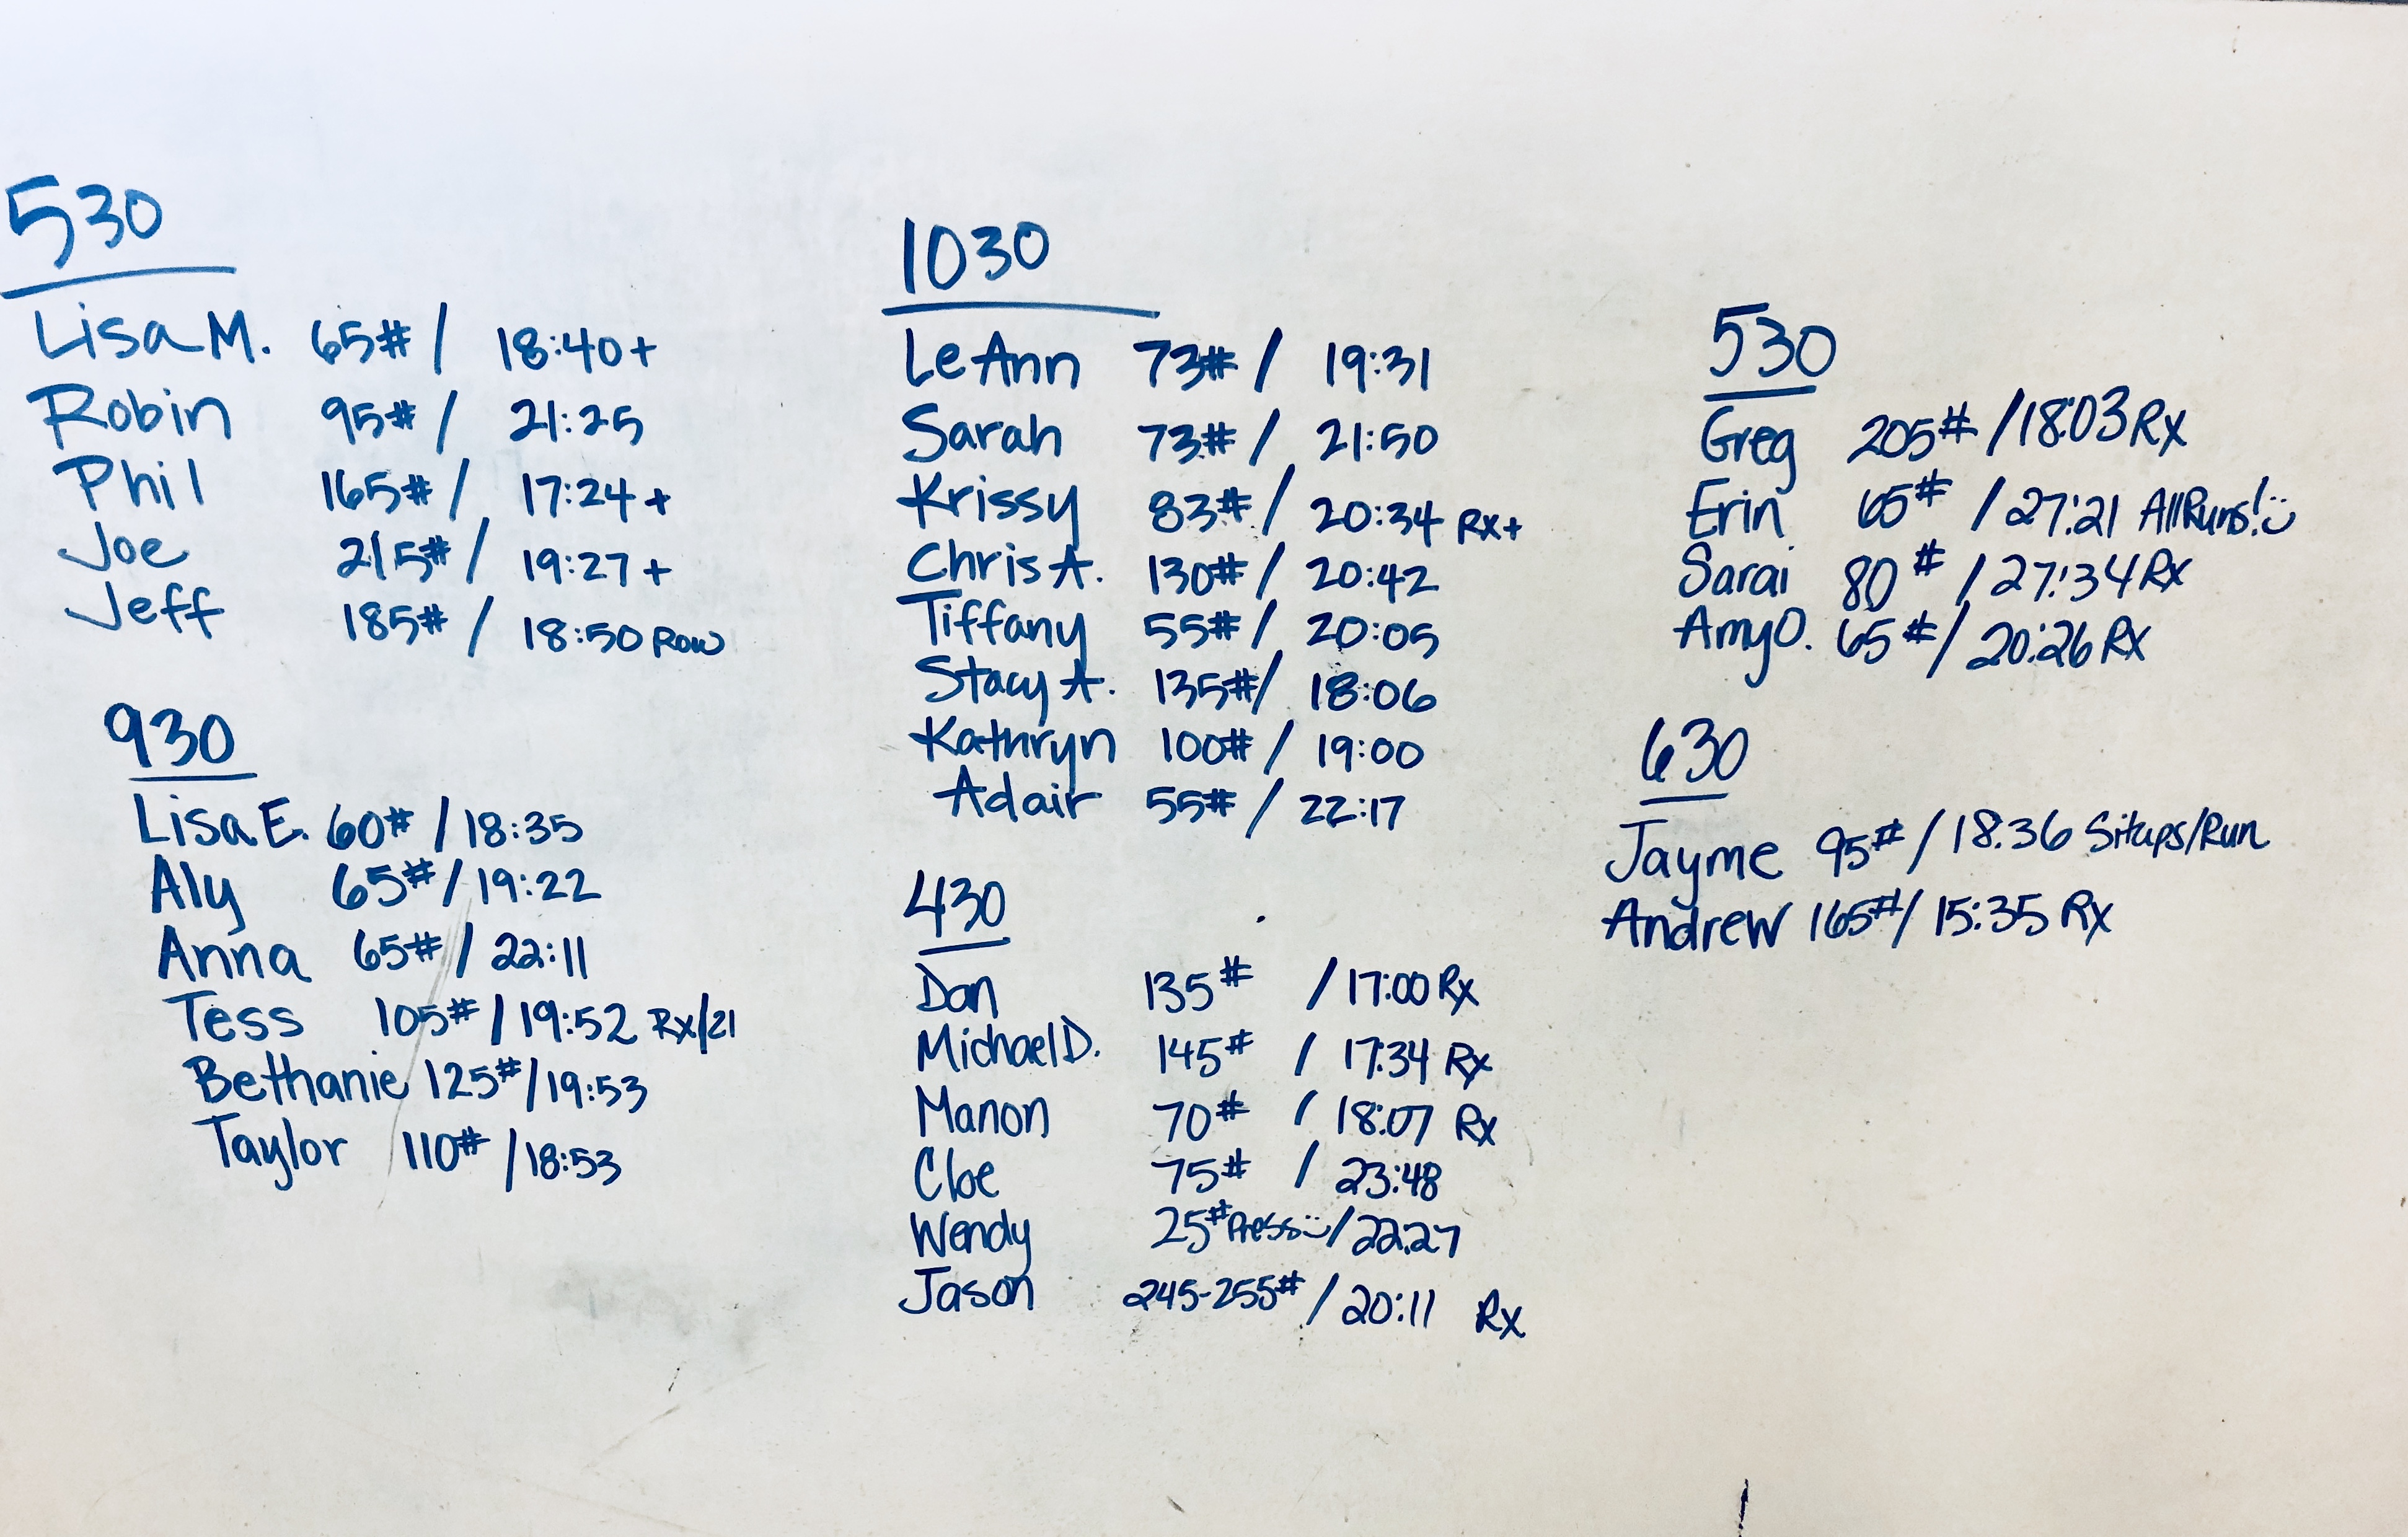 530
Lisa M. 65# / 18:40 +
Robin 95# / 21:25
Phil 165# / 17:24 +
Joe 215# / 19:27 +
Jeff 185# / 18:50 Row
930
Lisa E. 60# / 18:35
Aly 65# / 19:22
Anna 65# / 22:11
Tess 105# / 19:52 Rx/21
Bethanie 125# / 19:53
Taylor 110# / 18:53
1030
LeAnn 73# / 19:31
Sarah 73# / 21:50
Krissy 83# / 20:34 Rx+
Chris A. 130# / 20:42
Tiffany 55# / 20:05
Stacy A. 135# / 18:06
Kathryn 100# / 19:00
Adair 55# / 22:17
430
Dan 135# / 17:00 Rx
Michael D. 145# / 17:34 Rx
Manon 70# / 18:07 Rx
Cloe 75# / 23:48
Wendy 25# Press :) / 22:27
Jason 245-255# / 20:11 Rx
530
Greg 205# / 18:03 Rx
Erin 65# / 27:21 All Runs! :)
Sarai 80# / 27:34 Rx
Amy O. 65# / 20:26 Rx
630
Jayme 95# / 18:36 Situps/Run
Andrew 165# / 15:35 Rx